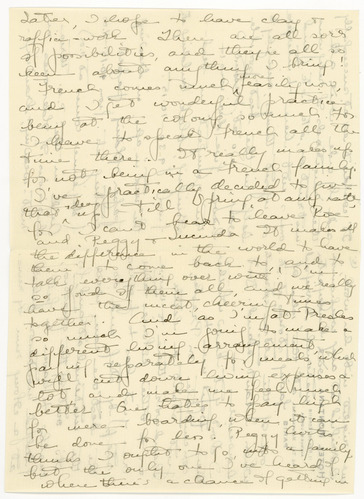 Later, I hope to have clay &
raffia-work. There are all sorts
of possibilities, and they're all so
keen about anything I bring!
French comes much more easily now,
and I get wonderful practice
being at the colony so much for
I have to speak French all the
time there. It really makes up
for not being in a French family.
I've practically decided to give
that idea up till Spring at any rate
for I can't bear to leave Rose
and Peggy & Lucinda. It makes all
the difference in the world to have
them to come back to, and to
talk everything over with. I'm
so fond of them all, and we really
have the nicest, cheering times
together. And as I'm at Presles
so much I'm going to make a
different living arrangement,
paying separately for meals, which
will cut down living expenses a
lot and make me feel much
better. One hates to pay high
for mere boarding, when it can
be done for less. Peggy
thinks I ought to go into a family,
but the only one I've heard of
where there's a chance of getting in